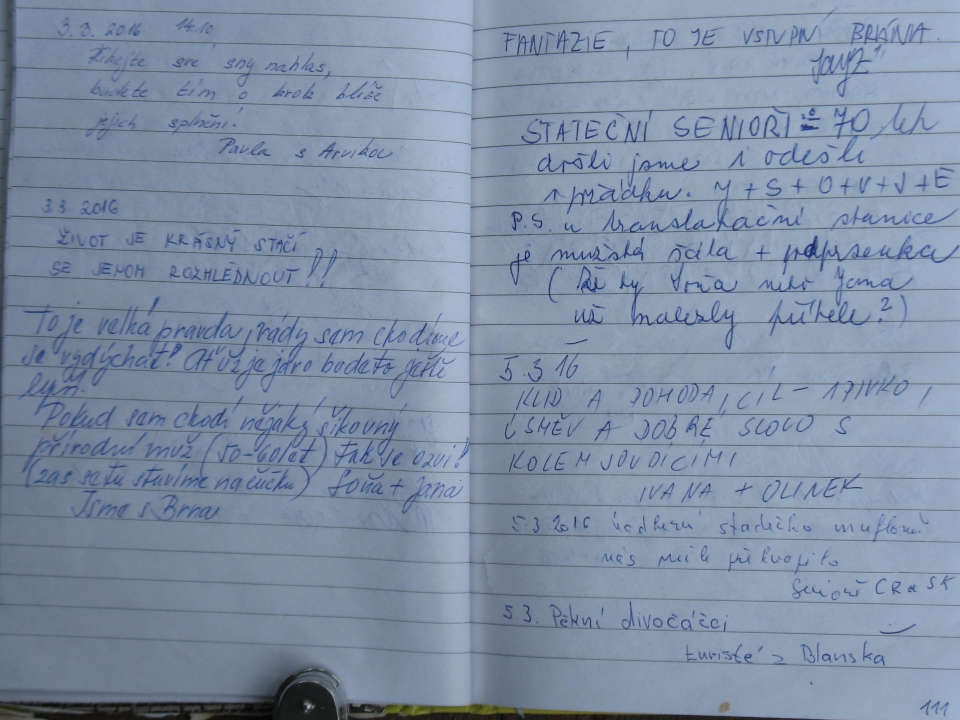 3.3. 2016 14.10
Říkejte své sny nahlas,
budete tím o krok blíže
jejich splnění.
Pavla s Arvikou
3.3. 2016
ŽIVOT JE KRÁSNÝ STAČÍ
SE JENOM ROZHLÉDNOUT!!
To je velká pravda, rády sam chodíme
se vydýchat! Až už je jaro bude to ještě
lepší.
Pokud sam chodí nějaký šikovný
přírodní muž (50-60let) tak se ozvi!
(zas se tu stavíme na čúčku) Soňa + Jana
Jsme s Brna
FANTAZIE, TO JE VSTUPNÍ BRÁNA.
STATEČNÍ SENIOŘI 70 let
došli jsme i odešli
v pořádku. Y + S + O + V + J + E
P.S. u translakační stanice
je mužská šála + podprsenka
(že by Soňa nebo Jana
už nalezly přítele?)
5.3 16
KLID A POHODA, CÍL - 1 PIVKO,
ÚSMĚV A DOBRÉ SLOVO S
KOLEMJDOUCÍMI
IVANA + OLINEK
5.3 2016 nádherné stádečko muflonů
nás mile překvapilo
Senioři ČR a SK
5 3. Pěkní divočáčci
turisté z Blanska
111